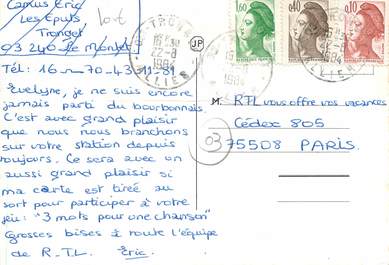 Camus Eric
Les Eputs
Tronget
03 240 le Montet
lot
Tél: 16 - 70-43-11-81
Evelyne, je ne suis encore
jamais parti du bourbonnais.
C'est avec grand plaisir
que nous nous branchons
sur votre station depuis
toujours. Ce sera avec un
aussi grand plaisir si
ma carte est tirée au
sort pour participer à votre
jeu: "3 mots pour une chanson"
Grosses bises à toute l'équipe
de R.T.L. Eric.
JP
22-8
1984
ALLIER
1,60
0,40
0,10
M. RTL vous offre vos vacances
Cédex 805
03
75508 PARIS.